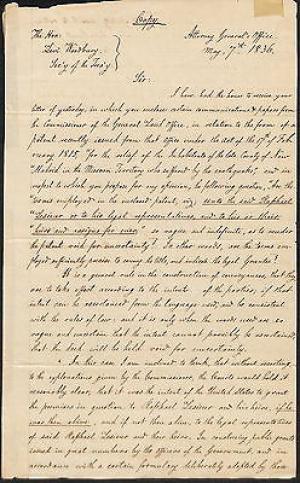 Copy
The Hon:
Levi Woodbury
Sec'y of the Treas'y
Attorney General's Office
May 7th 1836.
Sir:
I have had the honor to receive your
letter of yesterday, in which you enclose certain communications & papers from
the Commissioner of the General Land Office, in relation to the form of a
patent recently issued from that Office under the act of the 17th of Feb-
ruary 1815, "for the relief of the Inhabitants of the late County of New
Madrid in the Missouri Territory who suffered by the earthquakes", and in
respect to which you propose for my opinion, the following question, "Are the
terms employed in the enclosed patent, viz; unto the said Raphael
Lesieur or to his legal representatives, and to his or their
heirs and assigns for ever, so vague and indefinite, as to render
the patent void for uncertainty? In other words, are the terms em-
ployed sufficiently precise to convey the title, and indicate the legal Grantee?
It is a general rule in the construction of conveyances, that they
are to take effect according to the intent of the parties, if that
intent can be ascertained from the language used, and be consistent
with the rules of law; and it is only when the words used are so
vague and uncertain that the intent cannot possibly be ascertained,
that the deed will be held void for uncertainty.
In this case I am inclined to think, that without resorting
to the explanations given by the Commissioner, the Courts would hold it
reasonably clear, that it was the intent of the United States to grant
the premises in question to Raphael Lesieur and his heirs, if he
was then alive, and if not then alive, to the legal representatives
of said Raphael Lesieur and their heirs. In construing public grants
issued in great numbers by the officers of the Government, and in
accordance with a certain formulary deliberately adopted by them